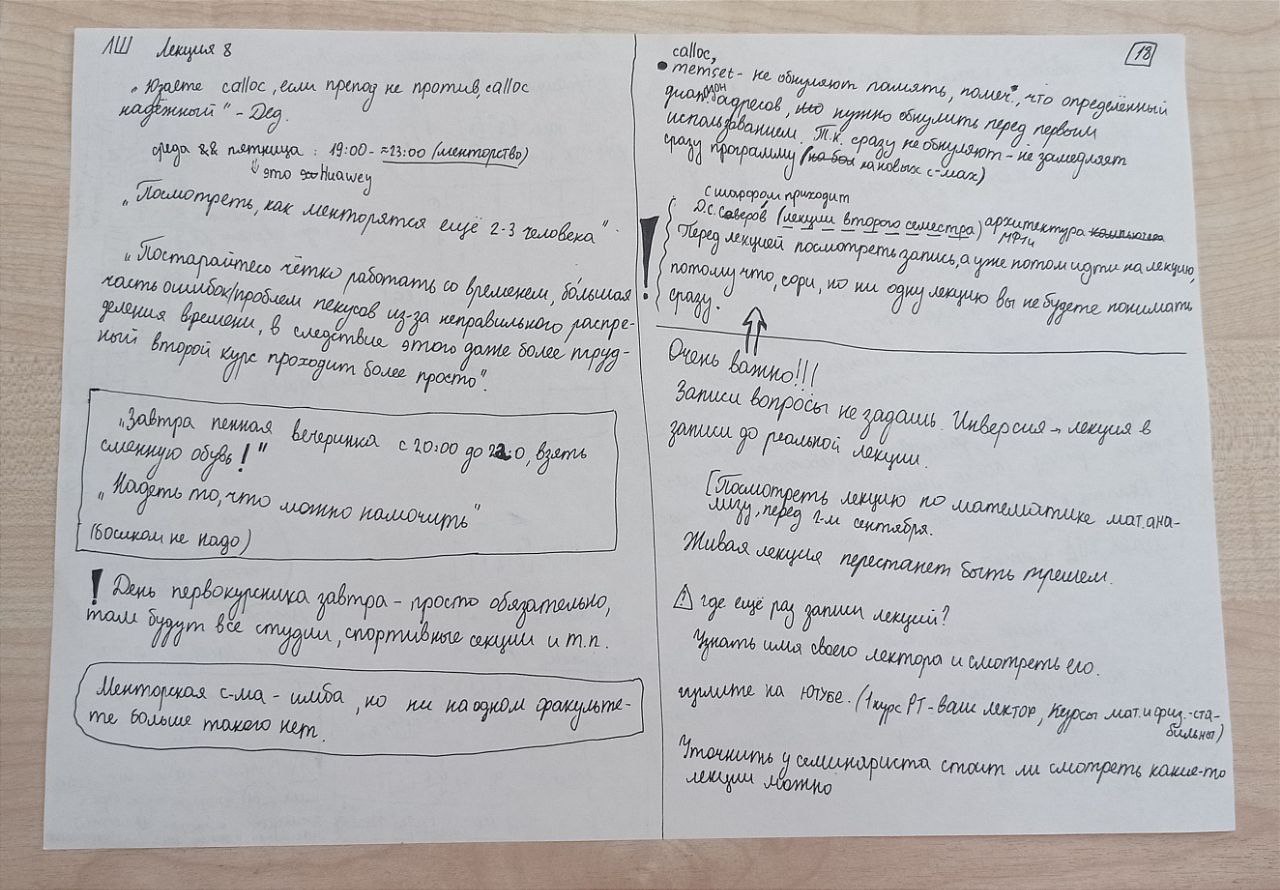 ЛШ Лекция 8
„Юзаете calloc, если препод не против, calloc
надёжный" - Дед.
среда && пятница : 19:00 - ≈23:00 (менторство)
это Huawey
„Посмотреть, как менторятся ещё 2-3 человека".
„Постарайтесь чётко работать со временем, бо́льшая
часть ошибок/проблем пекусов из-за неправильного распре-
деления времени, в следствие этого даже более труд-
ный второй курс проходит более просто".
„Завтра пенная вечеринка с 20:00 до , взять
сменную обувь!"
„Надеть то, что можно намочить"
(босиком не надо)
! День первокурсника завтра - просто обязательно,
там будут все студии, спортивные секции и т.п.
Менторская с-ма - имба, но ни на одном факульте-
те больше такого нет.
18
calloc,
• memset - не обнуляют память, помеч., что определённый
диапазон адресов, нужно обнулить перед первым
использованием. Т.к. сразу не обнуляют - не замедляет
сразу программу (на новых с-мах)
с шарфом приходит
! Д.С. Саверов (лекции второго семестра) архитектура
МФТИ
Перед лекцией посмотреть запись, а уже потом идти на лекцию,
потому что, сори, но ни одну лекцию вы не будете понимать
сразу.
Очень важно!!!
Записи вопросы не задашь. Инверсия → лекция в
записи до реальной лекции.
[Посмотреть лекцию по математике мат.ана-
лизу, перед 2-м сентября.
Живая лекция перестанет быть трешем.
⚠ где ещё раз записи лекций?
Узнать имя своего лектора и смотреть его.
гуглите на ютубе. (1 курс РТ - ваш лектор, Курсы мат. и физ. - ста-
бильны)
Уточнить у семинариста стоит ли смотреть какие-то
лекции можно